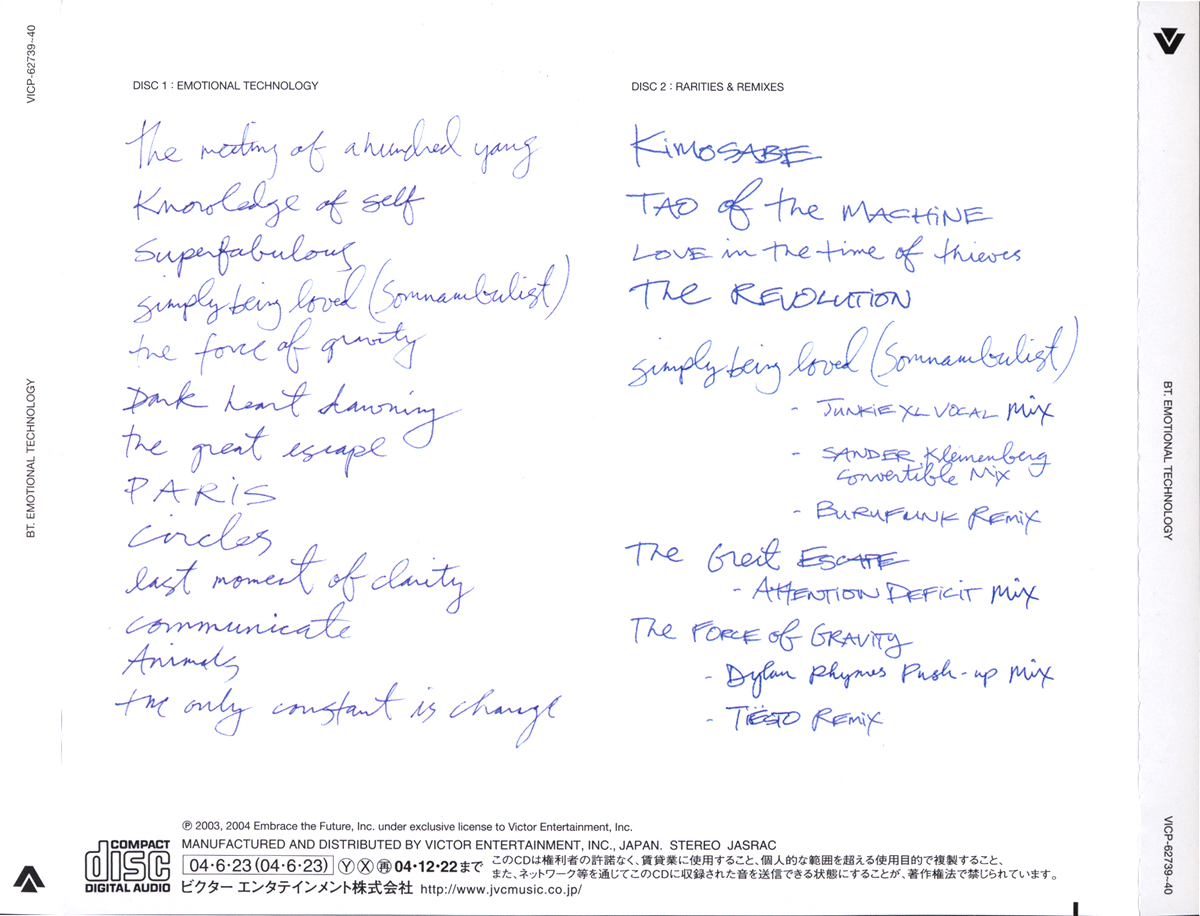 VICP-62739~40
BT. EMOTIONAL TECHNOLOGY
DISC 1 : EMOTIONAL TECHNOLOGY
the meeting of a hundred yang
Knowledge of self
Superfabulous
simply being loved (Somnambulist)
the force of gravity
Dark heart dawning
the great escape
PARiS
circles
last moment of clarity
communicate
Animals
the only constant is change
DISC 2 : RARITIES & REMIXES
KiMOSABE
TAO of the MACHiNE
LOVE in the time of thieves
The REVOLUTION
simply being loved (Somnambulist)
- JUNKiE XL VOCAL MiX
- SANDER Kleinenberg
Convertible Mix
- BURUFUNK REMiX
The Great ESCAPE
- ATTENTION DEFICIT MiX
The FORCE of GRAVITY
- Dylan Rhymes Push-up MiX
- TIËSTO REMiX
℗ 2003, 2004 Embrace the Future, Inc. under exclusive license to Victor Entertainment, Inc.
MANUFACTURED AND DISTRIBUTED BY VICTOR ENTERTAINMENT, INC., JAPAN. STEREO JASRAC
COMPACT
disc
DIGITAL AUDIO
04・6・23 (04・6・23) Ⓨ Ⓧ ㊞04・12・22まで
このCDは権利者の許諾なく、賃貸業に使用すること、個人的な範囲を超える使用目的で複製すること、
また、ネットワーク等を通じてこのCDに収録された音を送信できる状態にすることが、著作権法で禁じられています。
ビクター エンタテインメント株式会社 http://www.jvcmusic.co.jp/
BT. EMOTIONAL TECHNOLOGY
VICP-62739~40